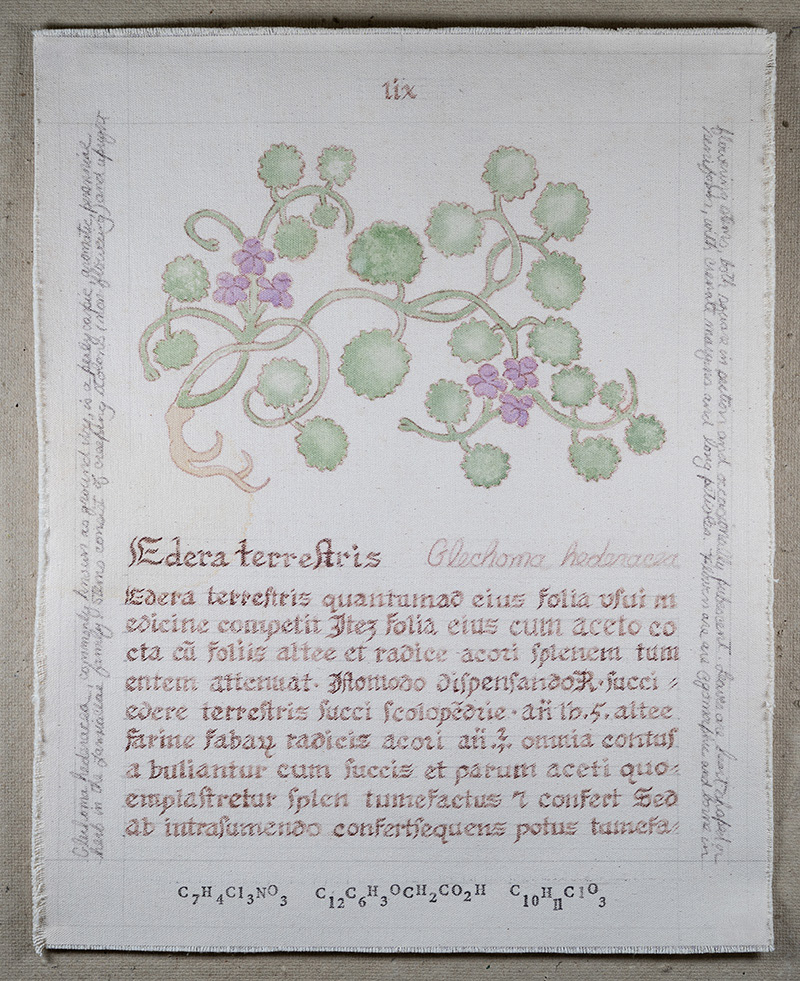 lix
Edera terrestris Glechoma hederacea
Edera terrestris quantumad eius folia vsui m
edicine competit Itez folia eius cum aceto co
cta cū foliis altee et radice acori splenem tum
entem attenuat. Istomodo dispensando℞. succi ⸗
edere terrestris succi scolopēdrie. añ lb.5. altee
farine fabaꝝ radicis acori añ.ʒ. omnia contus
a buliantur cum succis et parum aceti quo⸗
emplastretur splen tumefactus ⁊ confert Sed
ab intrasumendo confertsequens potus tumefa⸗
C7H4Cl3NO3 C12C6H3OCH2CO2H C10H11ClO3
Glechoma hederacea, commonly known as ground ivy, is a aromatic, perennial
herb in the Lamiaceae family. Stems consist of creeping stolons (non flowering) and upright
flowering stems, both square in section and occasionally pubescent. Leaves are
reniform, with crenate margins and long petioles. Flowers are zygomorphic and borne in